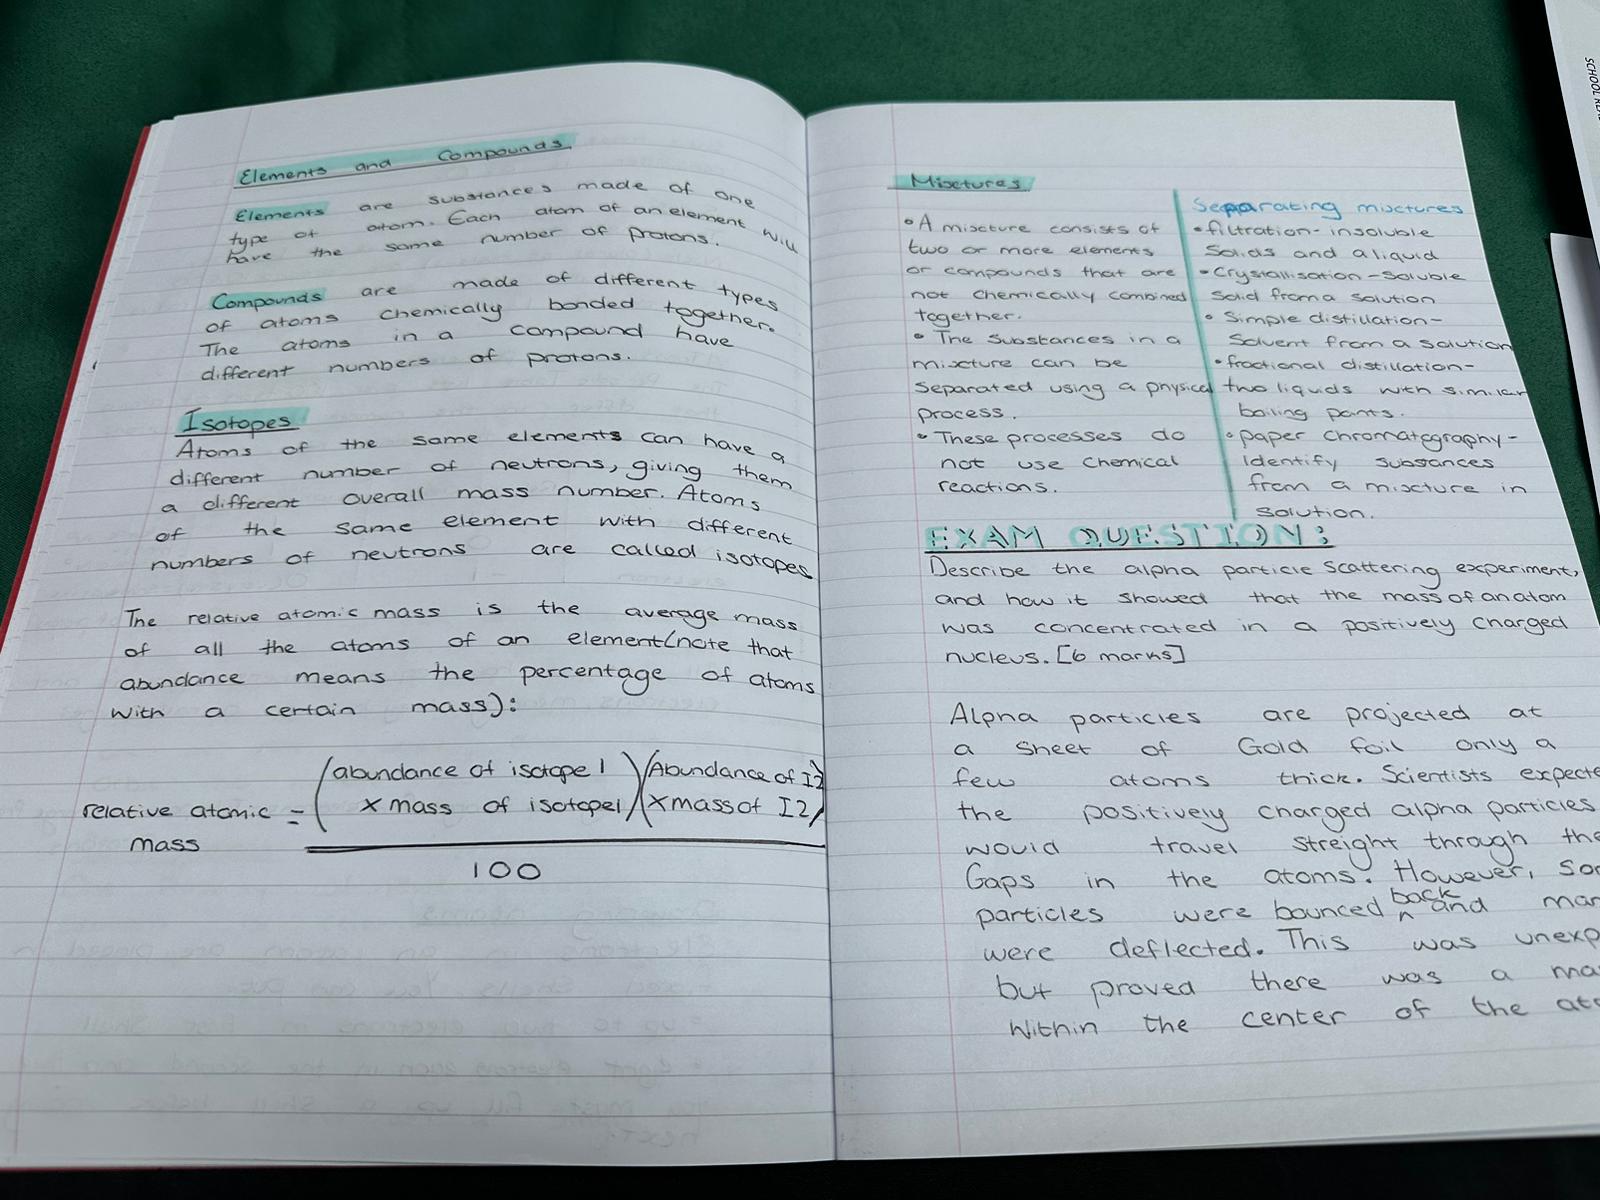 Elements and Compounds
Elements are substances made of one
type of atom. Each atom of an element will
have the same number of protons.
Compounds are made of different types
of atoms chemically bonded together.
The atoms in a compound have
different numbers of protons.
Isotopes
Atoms of the same elements can have a
different number of neutrons, giving them
a different overall mass number. Atoms
of the same element with different
numbers of neutrons are called isotopes
The relative atomic mass is the average mass
of all the atoms of an element(note that
abundance means the percentage of atoms
with a certain mass):
relative atomic mass = (abundance of isotope 1 x mass of isotope1)(Abundance of I2 x mass of I2)
100
Mixtures
• A mixture consists of
two or more elements
or compounds that are
not chemically combined
together.
• The substances in a
mixture can be
separated using a physical
process.
• These processes do
not use chemical
reactions.
Separating mixtures
• filtration - insoluble
solids and a liquid
• Crystallisation - soluble
solid from a solution
• Simple distillation -
Solvent from a solution
• fractional distillation -
two liquids with similar
boiling points.
• paper chromatography -
Identify substances
from a mixture in
solution.
EXAM QUESTION:
Describe the alpha particle scattering experiment,
and how it showed that the mass of an atom
was concentrated in a positively charged
nucleus. [6 marks]
Alpha particles are projected at
a sheet of Gold foil only a
few atoms thick. Scientists expecte
the positively charged alpha particles
would travel streight through the
Gaps in the atoms. However, so
particles were bounced back and man
were deflected. This was unexp
but proved there was a ma
within the center of the ato
SCHOOL